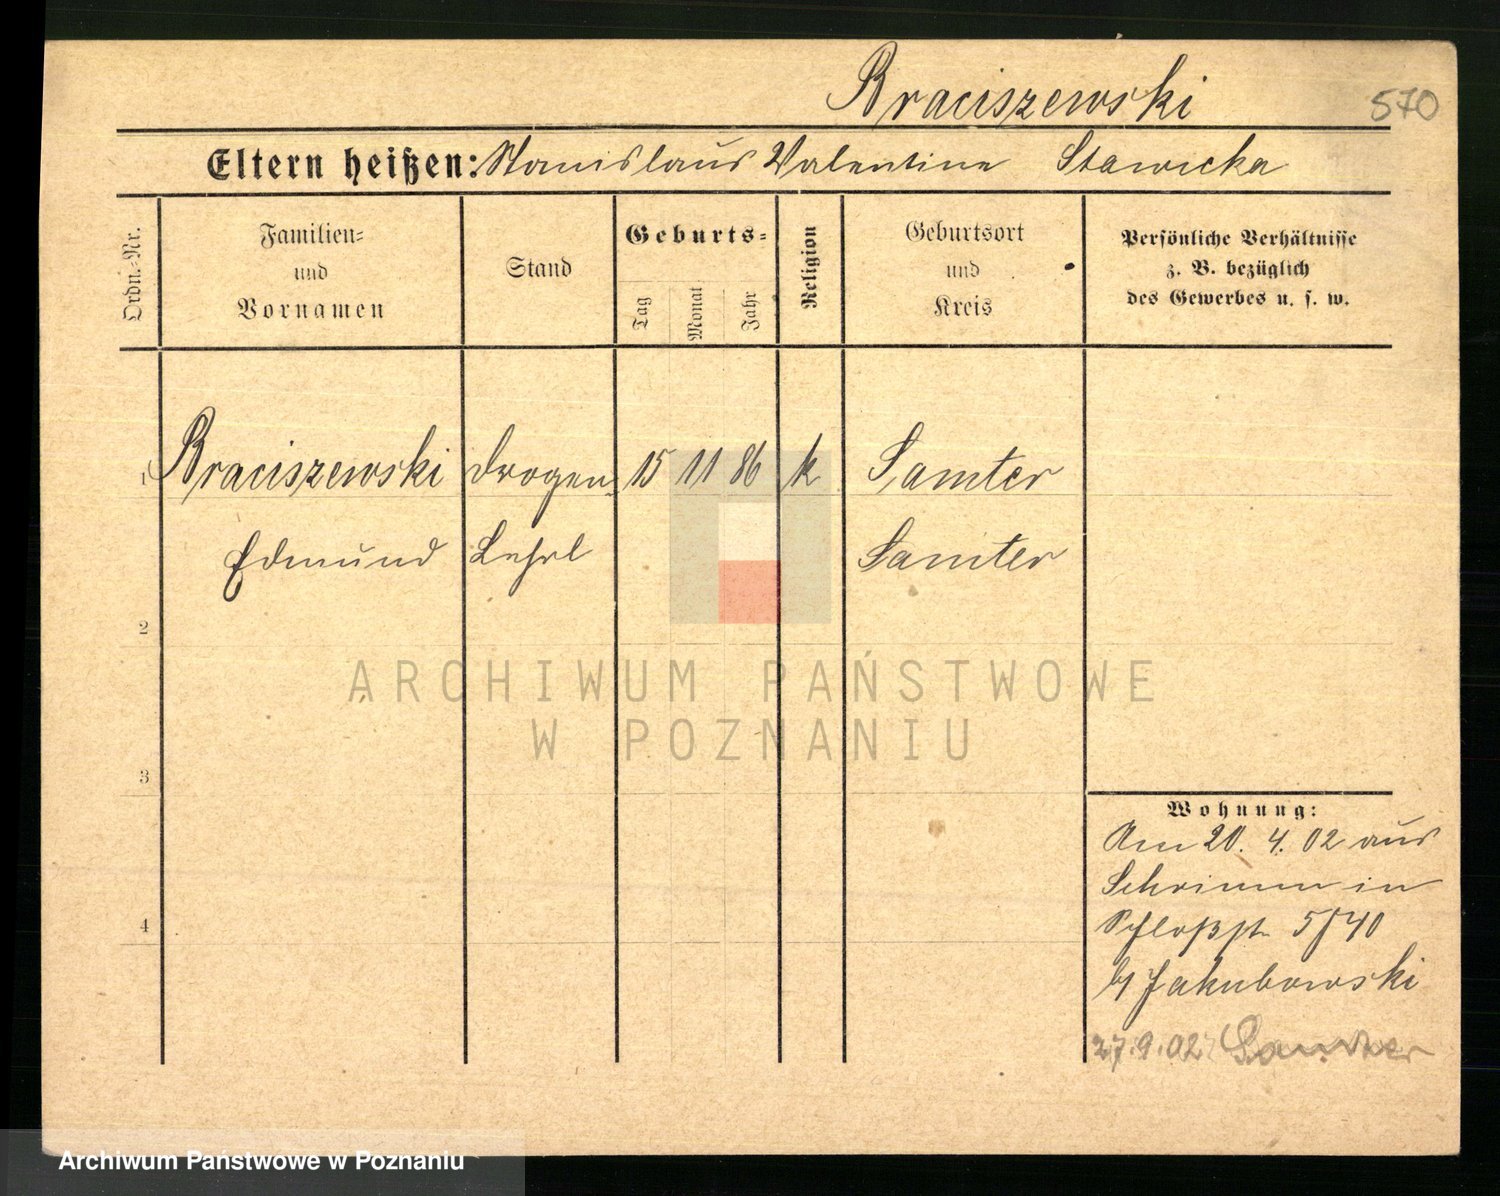 Braciszewski
570
Eltern heißen: Stanislaus Valentine Stawicka
Ordn.-Nr.
Familien=
und
Vornamen
Stand
Geburts=
Tag
Monat
Jahr
Religion
Geburtsort
und
Kreis
Persönliche Verhältnisse
z. B. bezüglich
des Gewerbes u. s. w.
1 Braciszewski Drogen 15 11 86 k Samter
Edmund Lehrl Samter
2
ARCHIWUM PAŃSTWOWE
W POZNANIU
3
4
Wohnung:
Am 20. 4. 02 aus
Schrimm in
5/40
b/ Jakubowski
27.9.02 Samter
Archiwum Państwowe w Poznaniu